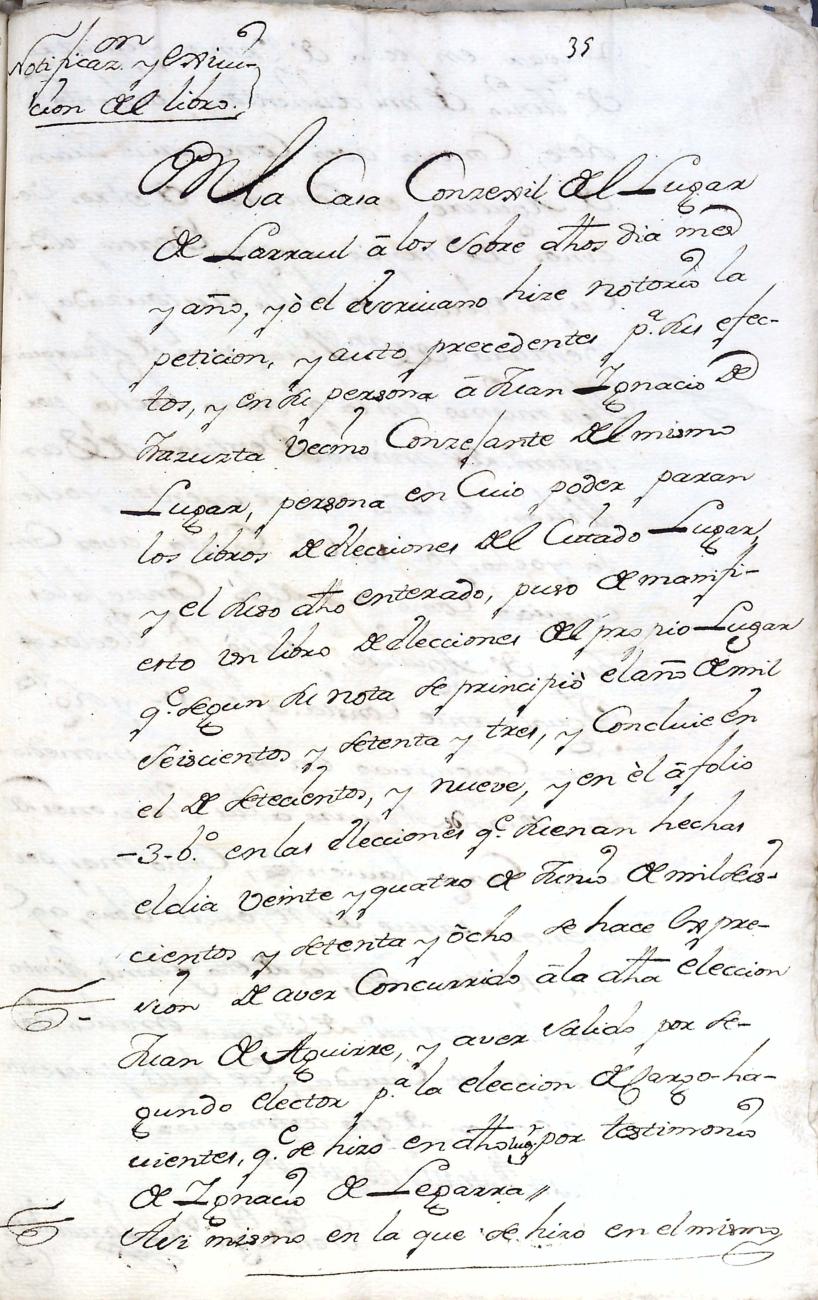 35
Notificaz.on y Exivi-
cion del libro.
En la Casa Conzexil del Lugar
de Larraul â los sobre dhos dia mes
y año, yò el escrivano hize notorio la
peticion, y auto precedentes p.a sus efec-
tos, y en su persona â Juan Ignacio de
Yazurta vecino Conzejante del mismo
Lugar, persona en Cuio poder paran
los libros de elecciones del Citado Lugar,
y el suso dho enterado, puso de manifi-
esto un libro de elecciones del propio Lugar
q.e segun su nota se principiò el año de mil
seiscientos y setenta y tres, y Concluie en
el de setecientos, y nueve, y en èl â folio
-3-b.to en las elecciones q.e suenan hechas
el dia veinte y quatro de Junio de mil seis-
cientos y setenta y òcho se hace Expre-
sion de aver Concurrido âla dha eleccion
Juan de Aguirre, y aver salido por se-
gundo elector p.a la eleccion de Cargo-ha-
vientes, q.e se hizo en dho lug.r por testimonio
de Ignacio de Legarra //
Asi mismo en la que se hizo en el mismo